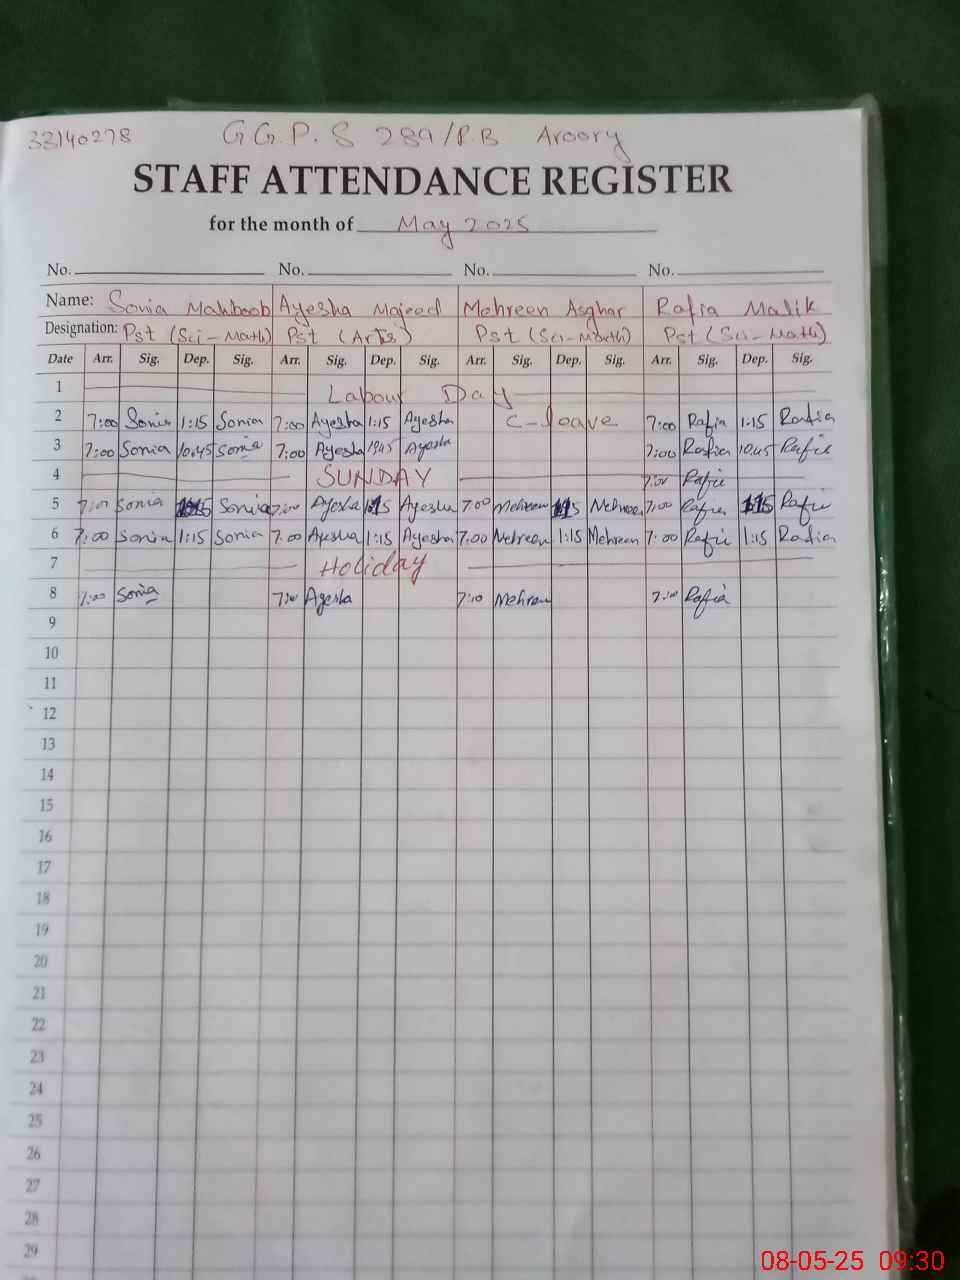 33140278 G G. P. S 289/R.B Aroory
STAFF ATTENDANCE REGISTER
for the month of May 2025
No. No. No. No.
Name: Sonia Mahboob Ayesha Majeed Mehreen Asghar Rafia Malik
Designation: Pst (Sci-Math) Pst (Arts) Pst (Sci-Math) Pst (Sci-Math)
Date Arr. Sig. Dep. Sig. Arr. Sig. Dep. Sig. Arr. Sig. Dep. Sig. Arr. Sig. Dep. Sig.
1 Labour Day
2 7:00 Sonia 1:15 Sonia 7:00 Ayesha 1:15 Ayesha C-leave 7:00 Rafia 1:15 Rafia
3 7:00 Sonia 10:45 Sonia 7:00 Ayesha 10:45 Ayesha 7:00 Rafia 10:45 Rafia
4 SUNDAY 7:00 Rafia
5 7:00 Sonia 1:15 Sonia 7:00 Ayesha 1:15 Ayesha 7:00 Mehreen 1:15 Mehreen 7:00 Rafia 1:15 Rafia
6 7:00 Sonia 1:15 Sonia 7:00 Ayesha 1:15 Ayesha 7:00 Mehreen 1:15 Mehreen 7:00 Rafia 1:15 Rafia
7 Holiday
8 7:00 Sonia 7:00 Ayesha 7:10 Mehreen 7:00 Rafia
9
10
11
12
13
14
15
16
17
18
19
20
21
22
23
24
25
26
27
28
29
08-05-25 09:30